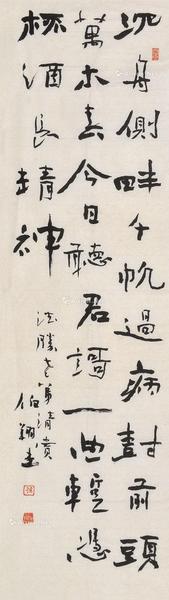 沉舟側畔千帆過病封前頭
萬木春今日聽君謌一曲輕憑
杯酒長精神
法勝老弟清賞
伯翔書